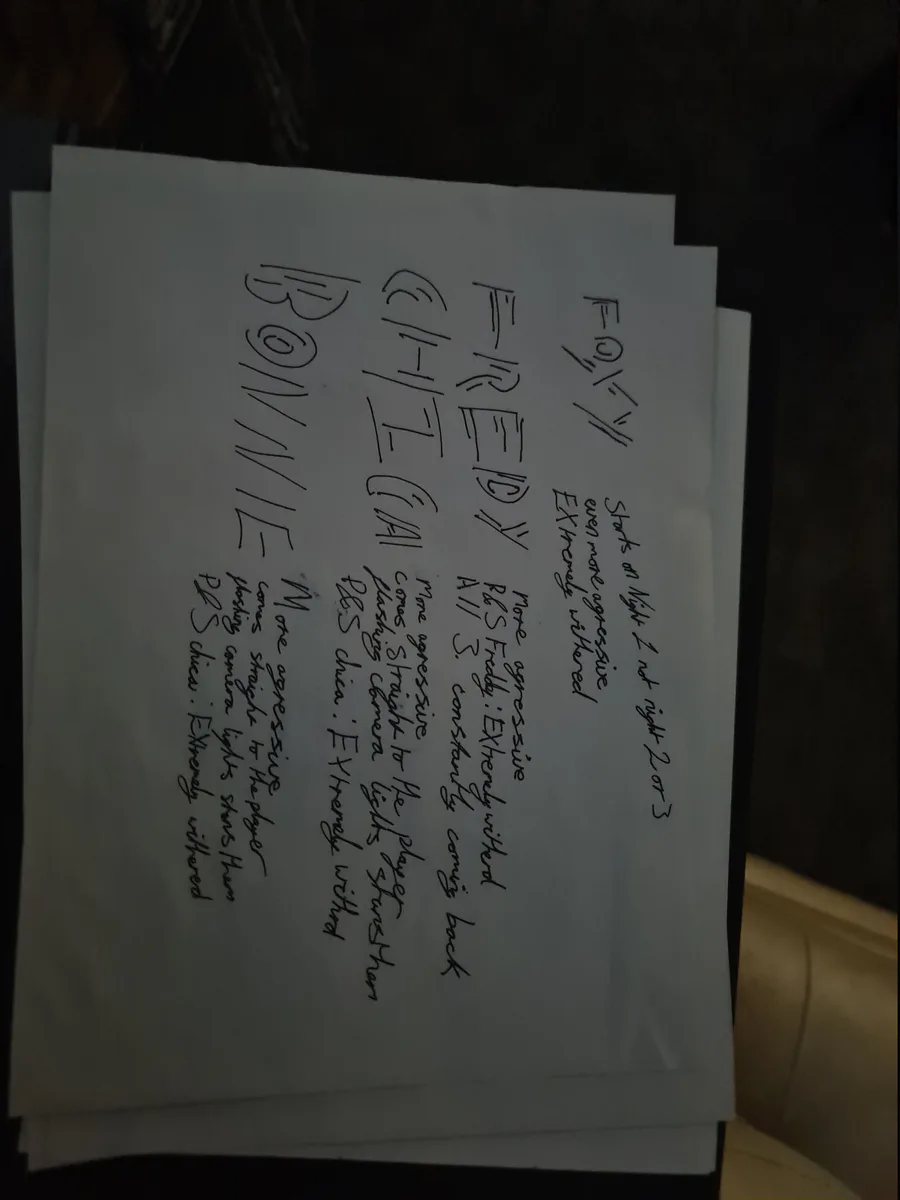 FOXY
Starts on Night 1 not night 2 or 3
even more agressive
EXtremely withered
FREDY
More agressive
P&S Freddy: EXtremely witherd
All 3 constantly coming back
CHICA
More agressive
comes straight to the player
flushing camera lights stuns them
P&S chica: EXtremely withrd
BONNIE
More agressive
comes straight to the player
flushing camera lights stuns them
P&S chica: EXtremely withered